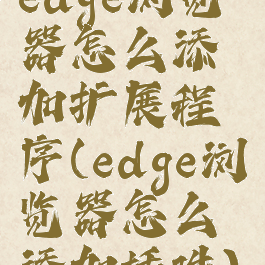 edge浏览
器怎么添
加扩展程
序(edge浏
览器怎么
添加插哦)